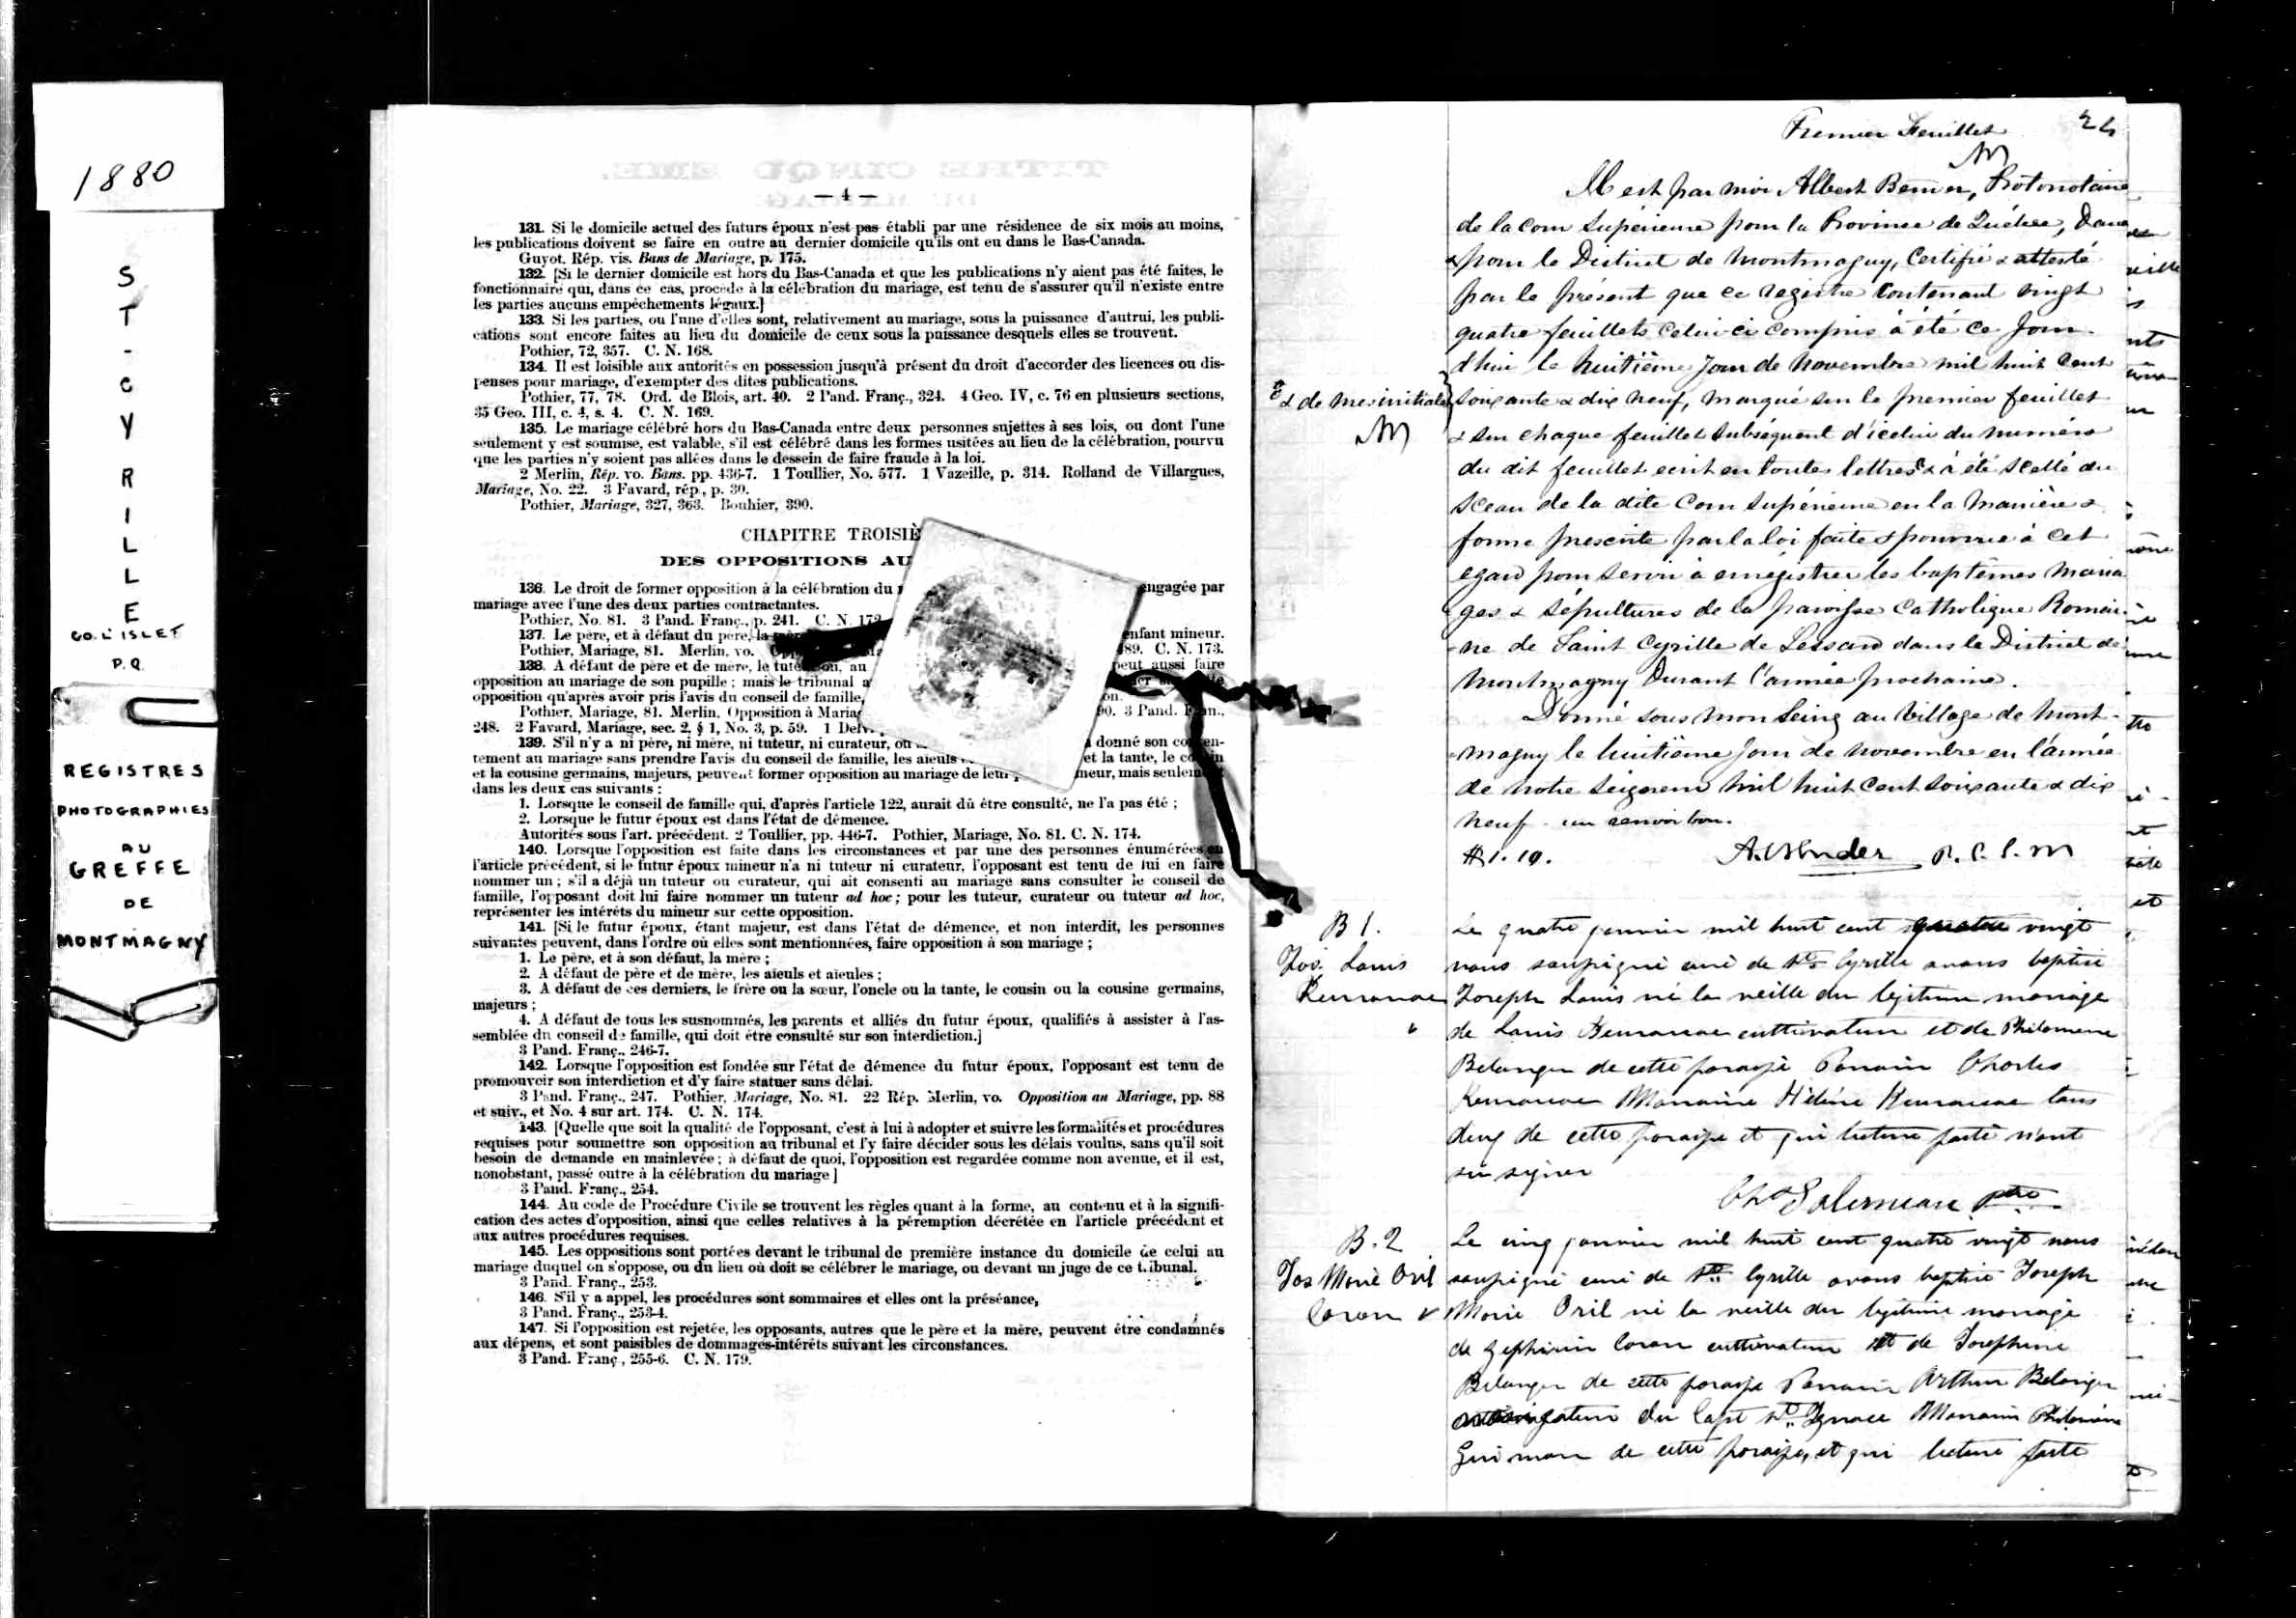 1880
ST-CYRILLE
CO. L'ISLET
P.Q.
REGISTRES
PHOTOGRAPHIES
AU
GREFFE
DE
MONTMAGNY
— 4 —
131. Si le domicile actuel des futurs époux n'est pas établi par une résidence de six mois au moins,
les publications doivent se faire en outre au dernier domicile qu'ils ont eu dans le Bas-Canada.
Guyot, Rép. vis. Bans de Mariage, p. 175.
132. [Si le dernier domicile est hors du Bas-Canada et que les publications n'y aient pas été faites, le
fonctionnaire qui, dans ce cas, procède à la célébration du mariage, est tenu de s'assurer qu'il n'existe entre
les parties aucuns empêchements légaux.]
133. Si les parties, ou l'une d'elles sont, relativement au mariage, sous la puissance d'autrui, les publi-
cations sont encore faites au lieu du domicile de ceux sous la puissance desquels elles se trouvent.
Pothier, 72, 357. C. N. 168.
134. Il est loisible aux autorités en possession jusqu'à présent du droit d'accorder des licences ou dis-
penses pour mariage, d'exempter des dites publications.
Pothier, 77, 78. Ord. de Blois, art. 40. 2 Pand. Franç., 324. 4 Geo. IV, c. 76 en plusieurs sections,
35 Geo. III, c. 4, s. 4. C. N. 169.
135. Le mariage célébré hors du Bas-Canada entre deux personnes sujettes à ses lois, ou dont l'une
seulement y est soumise, est valable, s'il est célébré dans les formes usitées au lieu de la célébration, pourvu
que les parties n'y soient pas allées dans le dessein de faire fraude à la loi.
2 Merlin, Rép. vo. Bans. pp. 436-7. 1 Toullier, No. 577. 1 Vazeille, p. 314. Rolland de Villargues,
Mariage, No. 22. 3 Favard, rép., p. 30.
Pothier, Mariage, 327, 363. Bouhier, 390.
CHAPITRE TROISIÈ
DES OPPOSITIONS AU
136. Le droit de former opposition à la célébration du engagée par
mariage avec l'une des deux parties contractantes.
Pothier, No. 81. 3 Pand. Franç., p. 241. C. N. 172
137. Le père, et à défaut du père, la enfant mineur.
Pothier, Mariage, 81. Merlin, vo. 89. C. N. 173.
138. A défaut de père et de mère, le tut au peut aussi faire
opposition au mariage de son pupille ; mais le tribunal
opposition qu'après avoir pris l'avis du conseil de famille,
Pothier, Mariage, 81. Merlin, Opposition à Maria 90. 3 Pand.
248. 2 Favard, Mariage, sec. 2, § 1, No. 3, p. 59. 1
139. S'il n'y a ni père, ni mère, ni tuteur, ni curateur, ou donné son consen-
tement au mariage sans prendre l'avis du conseil de famille, les aïeuls et la tante, le cousin
et la cousine germains, majeurs, peuvent former opposition au mariage de leur mineur, mais seulement
dans les deux cas suivants :
1. Lorsque le conseil de famille qui, d'après l'article 122, aurait dû être consulté, ne l'a pas été ;
2. Lorsque le futur époux est dans l'état de démence.
Autorités sous l'art. précédent. 2 Toullier, pp. 446-7. Pothier, Mariage, No. 81. C. N. 174.
140. Lorsque l'opposition est faite dans les circonstances et par une des personnes énumérées en
l'article précédent, si le futur époux mineur n'a ni tuteur ni curateur, l'opposant est tenu de lui en faire
nommer un ; s'il a déjà un tuteur ou curateur, qui ait consenti au mariage sans consulter le conseil de
famille, l'opposant doit lui faire nommer un tuteur ad hoc ; pour les tuteur, curateur ou tuteur ad hoc,
représenter les intérêts du mineur sur cette opposition.
141. [Si le futur époux, étant majeur, est dans l'état de démence, et non interdit, les personnes
suivantes peuvent, dans l'ordre où elles sont mentionnées, faire opposition à son mariage ;
1. Le père, et à son défaut, la mère ;
2. A défaut de père et de mère, les aïeuls et aïeules ;
3. A défaut de ces derniers, le frère ou la sœur, l'oncle ou la tante, le cousin ou la cousine germains,
majeurs ;
4. A défaut de tous les susnommés, les parents et alliés du futur époux, qualifiés à assister à l'as-
semblée du conseil de famille, qui doit être consulté sur son interdiction.]
3 Pand. Franç., 246-7.
142. Lorsque l'opposition est fondée sur l'état de démence du futur époux, l'opposant est tenu de
promouvoir son interdiction et d'y faire statuer sans délai.
3 Pand. Franç., 247. Pothier, Mariage, No. 81. 22 Rép. Merlin, vo. Opposition au Mariage, pp. 88
et suiv., et No. 4 sur art. 174. C. N. 174.
143. [Quelle que soit la qualité de l'opposant, c'est à lui à adopter et suivre les formalités et procédures
requises pour soumettre son opposition au tribunal et l'y faire décider sous les délais voulus, sans qu'il soit
besoin de demande en mainlevée ; à défaut de quoi, l'opposition est regardée comme non avenue, et il est,
nonobstant, passé outre à la célébration du mariage ]
3 Pand. Franç., 254.
144. Au code de Procédure Civile se trouvent les règles quant à la forme, au contenu et à la signifi-
cation des actes d'opposition, ainsi que celles relatives à la péremption décrétée en l'article précédent et
aux autres procédures requises.
145. Les oppositions sont portées devant le tribunal de première instance du domicile de celui au
mariage duquel on s'oppose, ou du lieu où doit se célébrer le mariage, ou devant un juge de ce tribunal.
3 Pand. Franç., 253.
146. S'il y a appel, les procédures sont sommaires et elles ont la préséance,
3 Pand. Franç., 253-4.
147. Si l'opposition est rejetée, les opposants, autres que le père et la mère, peuvent être condamnés
aux dépens, et sont paisibles de dommages-intérêts suivant les circonstances.
3 Pand. Franç , 255-6. C. N. 179.
Premier Feuillet 24
Il est par moi Albert Bender, Protonotaire
de la cour Supérieure pour la Province de Québec, Dans
& pour le District de Montmagny, Certifié & attesté
par le présent que ce registre contenant vingt
quatre feuillets celui ci compris à été ce Jour-
d'hui le huitième jour de Novembre mil huit Cent
& de mes initiales
soixante & dix neuf, marqué sur le premier feuillet
& sur chaque feuillet subséquent d'icelui du numéro
du dit feuillet écrit en toutes lettres & à été scellé du
Sceau de la dite Cour Supérieure en la Manière &
forme prescrite par la loi faite & pourvue à cet
egard pour servir à enrégistrer les baptêmes Maria-
ges & Sépultures de la paroisse Catholique Romai-
ne de Saint Cyrille de Lessard dans le District de
Montmagny Durant l'année prochaine.
Donné sous mon Seing au Village de Mont-
magny le huitième jour de Novembre en l'année
de notre Seigneur Mil huit Cent Soixante & dix
Neuf - un renvoi bon.
$1.10. A. Bender P. C. S. M
B 1.
Jos. Louis
Kerouac
Le quatre janvier mil huit cent quatre vingt
nous soussigné curé de St Cyrille avons baptisé
Joseph Louis né la veille du légitime mariage
de Louis Kerouac cultivateur et de Philomène
Belanger de cette paroisse Parrain Charles
Kerouac Marraine Hélène Kerouac tous
deux de cette paroisse et qui lecture faite n'ont
su signer
Chs Galerneau ptre
B. 2
Jos Marie Oril
Caron
Le cinq janvier mil huit cent quatre vingt nous
soussigné curé de St Cyrille avons baptisé Joseph
Marie Oril né la veille du légitime mariage
de Zephirin Caron cultivateur et de Josephine
Belanger de cette paroisse Parrain Arthur Belanger
du Cap St Ignace Marraine Philomène
Guimon de cette paroisse, et qui lecture faite